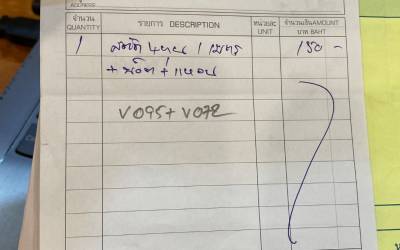 ADDRESS
จำนวน QUANTITY รายการ DESCRIPTION หน่วยละ UNIT จำนวนเงิน AMOUNT บาท BAHT
1 สตัด 4หุน 1 เมตร 150 -
+ น็อต + แหวน
V095 + V072